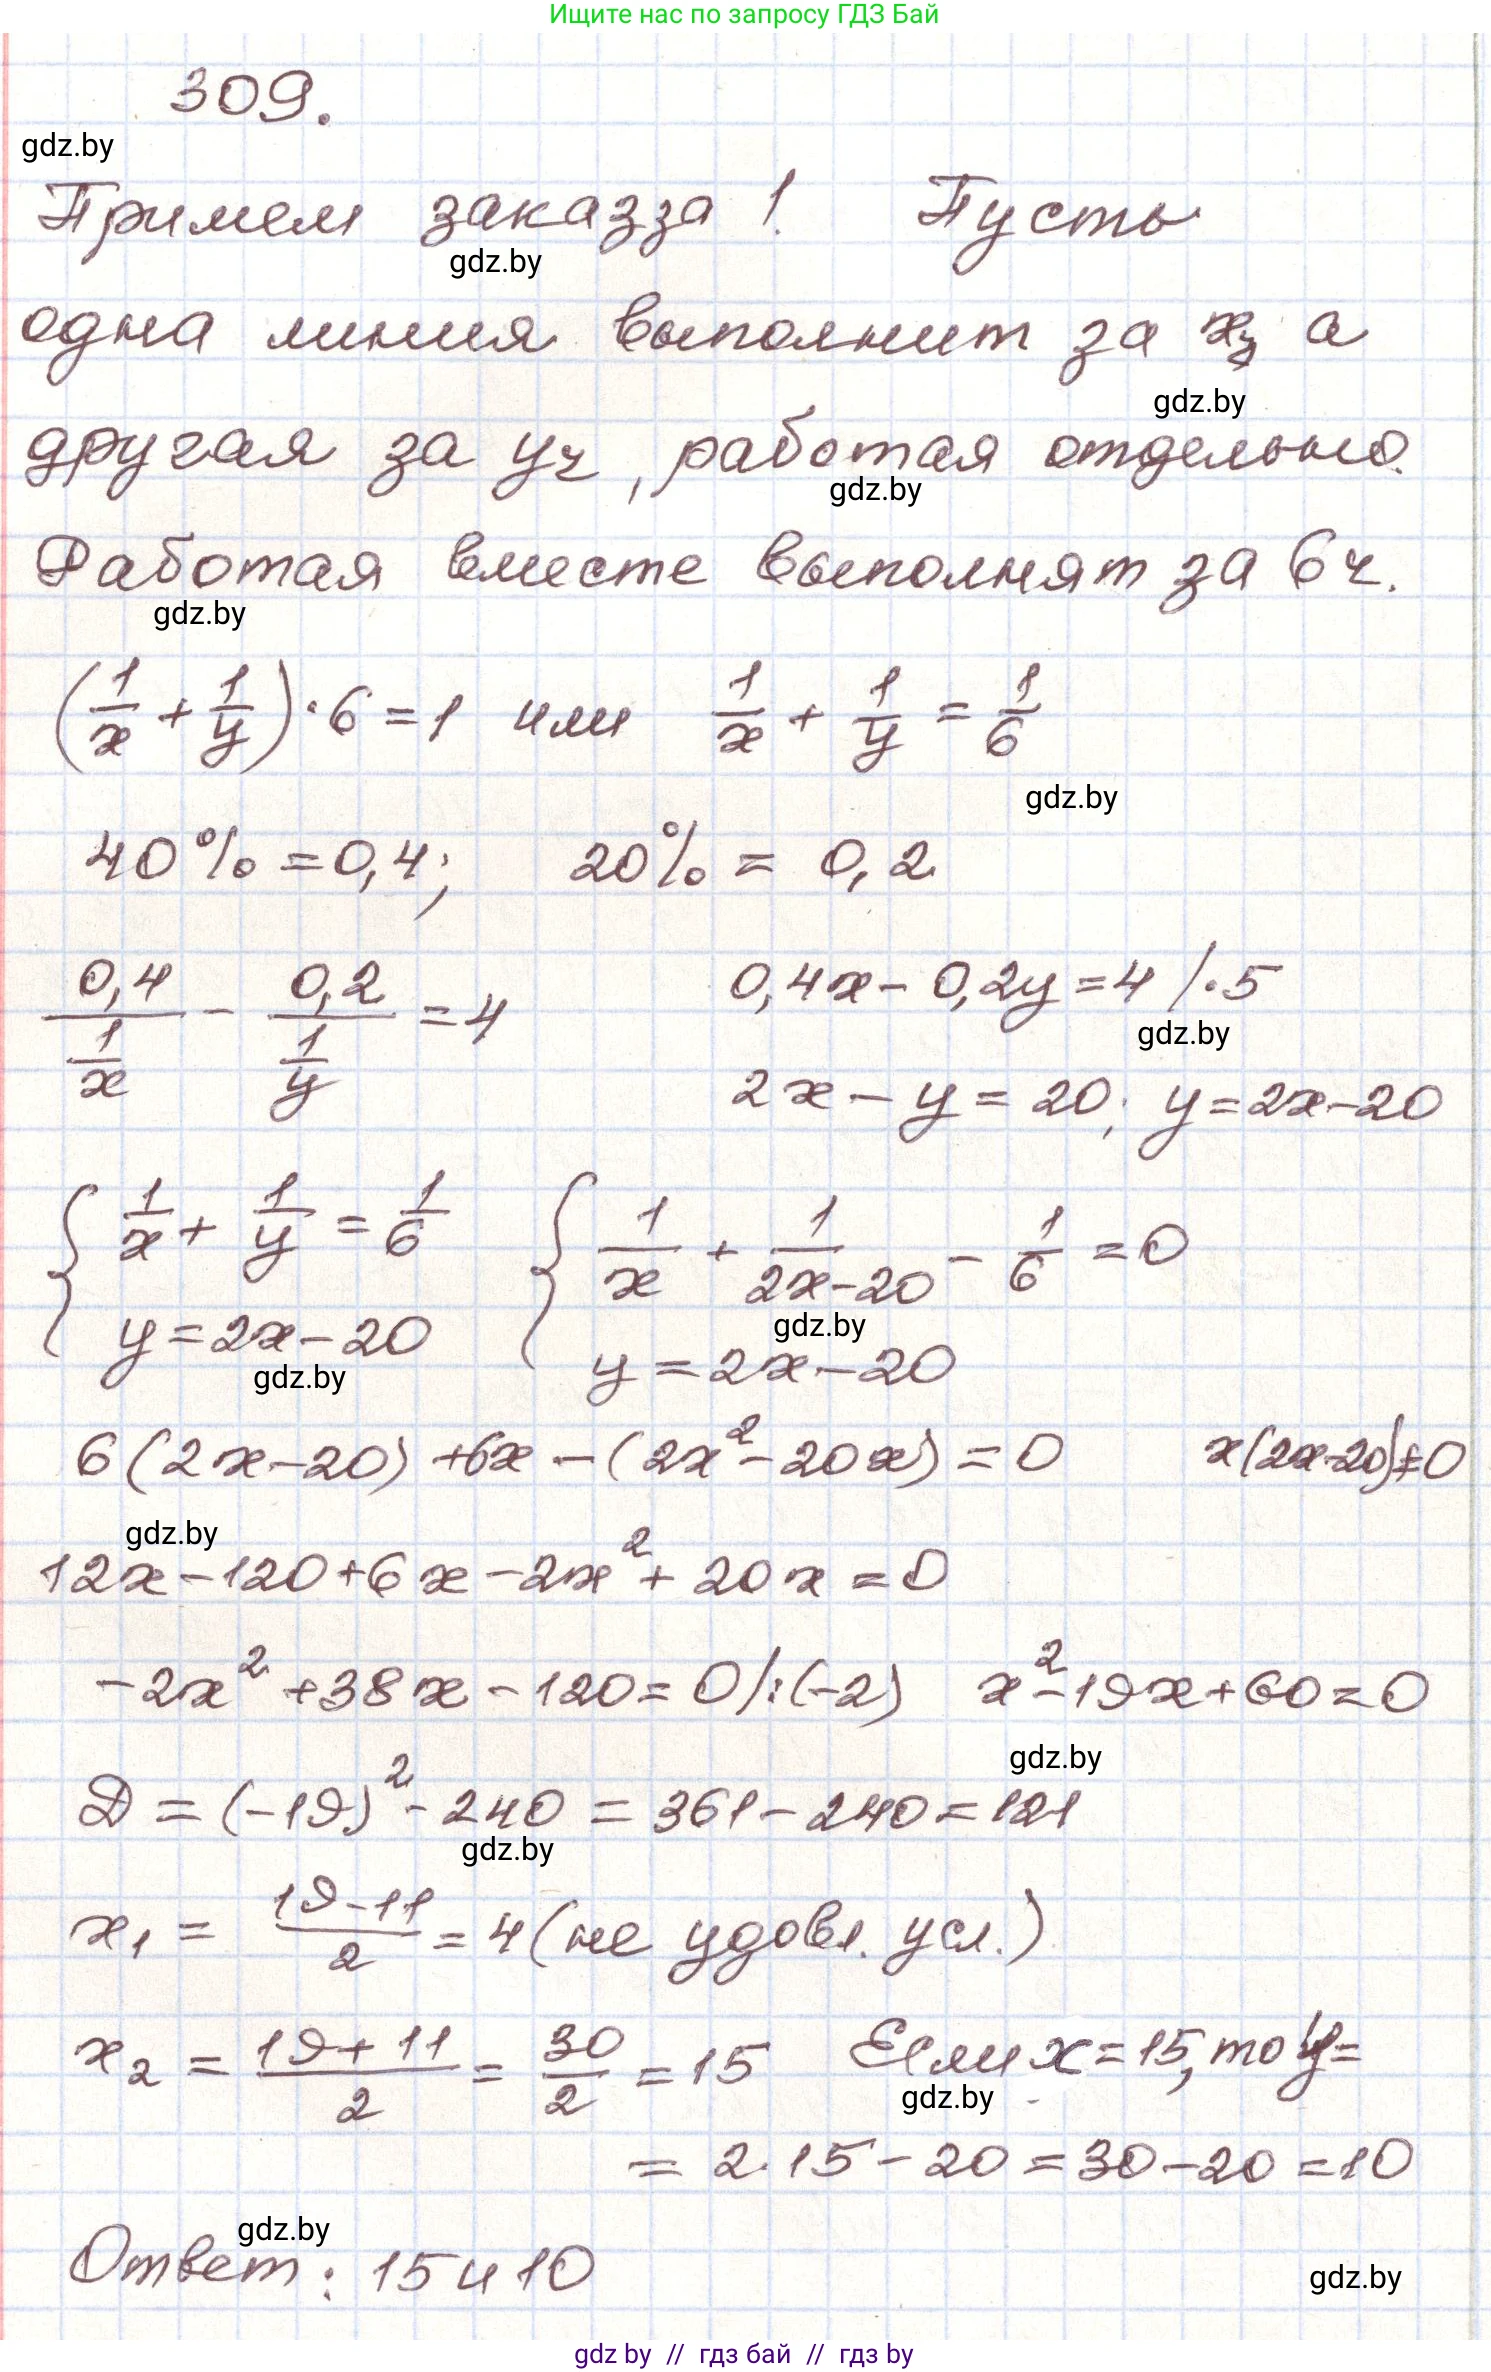 Ищите нас по запросу ГДЗ Бай
309.
gdz.by
Примем заказза 1. Пусть
gdz.by
одна линия выполнит за xч а
gdz.by
другая за yч, работая отдельно.
gdz.by
Работая вместе выполнят за 6ч.
gdz.by
(1/x + 1/y)·6=1 или 1/x + 1/y = 1/6
gdz.by
40%=0,4; 20% = 0,2
0,4/(1/x) - 0,2/(1/y) = 4 0,4x - 0,2y = 4 /·5
gdz.by
2x - y = 20; y=2x-20
{1/x + 1/y = 1/6 {1/x + 1/(2x-20) - 1/6 = 0
gdz.by
y=2x-20 y=2x-20
gdz.by
6(2x-20)+6x-(2x²-20x)=0 x(2x-20)≠0
gdz.by
12x-120+6x-2x²+20x=0
-2x²+38x-120=0/:(-2) x²-19x+60=0
gdz.by
Д=(-19)²-240=361-240=121
gdz.by
x₁ = (19-11)/2 = 4 (не удовл. усл.)
x₂ = (19+11)/2 = 30/2 = 15 Если x=15, то y=
gdz.by
= 2·15-20=30-20=10
gdz.by
Ответ: 15 и 10
gdz.by
gdz by // гдз бай // гдз by